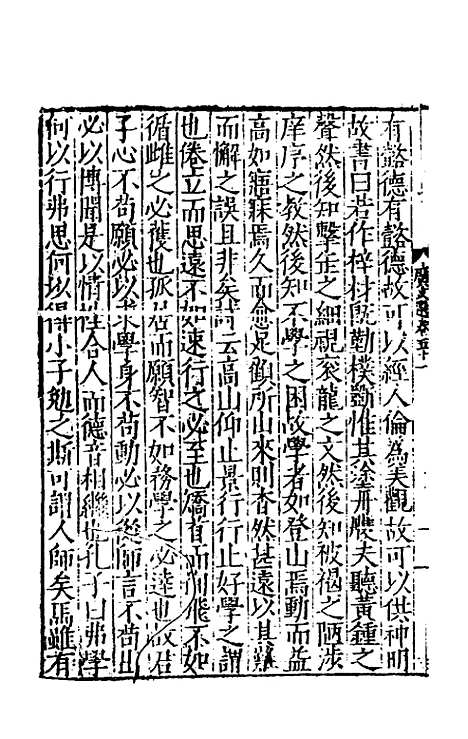 有懿德有懿德故可以經人倫為美觀故可以供神明
故書曰若作梓材既勤樸斵惟其塗丹雘夫聽黃鍾之
聲然後知擊缶之細視衮龍之文然後知被褐之陋涉
庠序之教然後知不學之困故學者如登山焉動而益
高如寤寐焉久而愈足顧所由來則杳然其遠以其難
而懈之誤且非矣詩云高山仰止景行行止好學之謂
也倦立而思遠不如速行之必至也矯首而徇飛不如
循雌之必獲也孤居而願智不如務學之必達也故君
子心不苟願必以求學身不苟動必以從師言不苟出
必以博聞是以情性合人而德音相繼也孔子曰弗學
何以行弗思何以得小子勉之斯可謂人師矣馬雖有